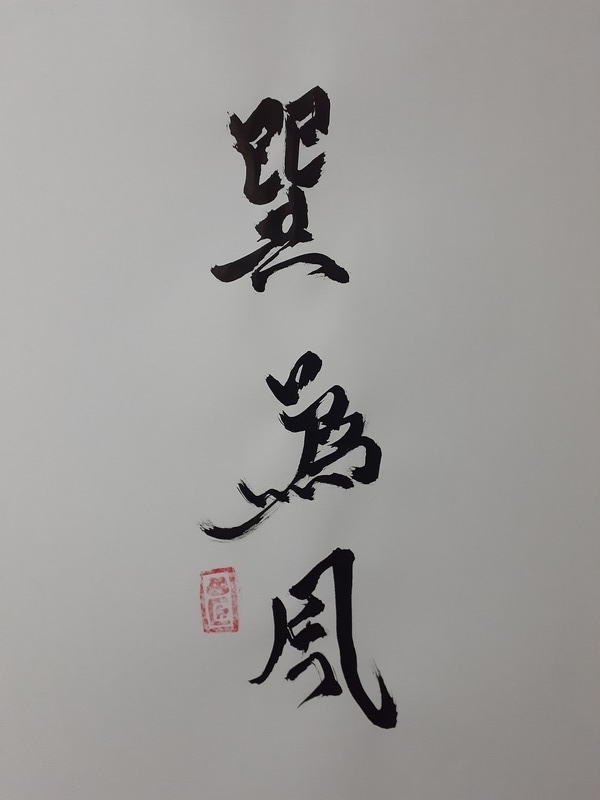 巽為風